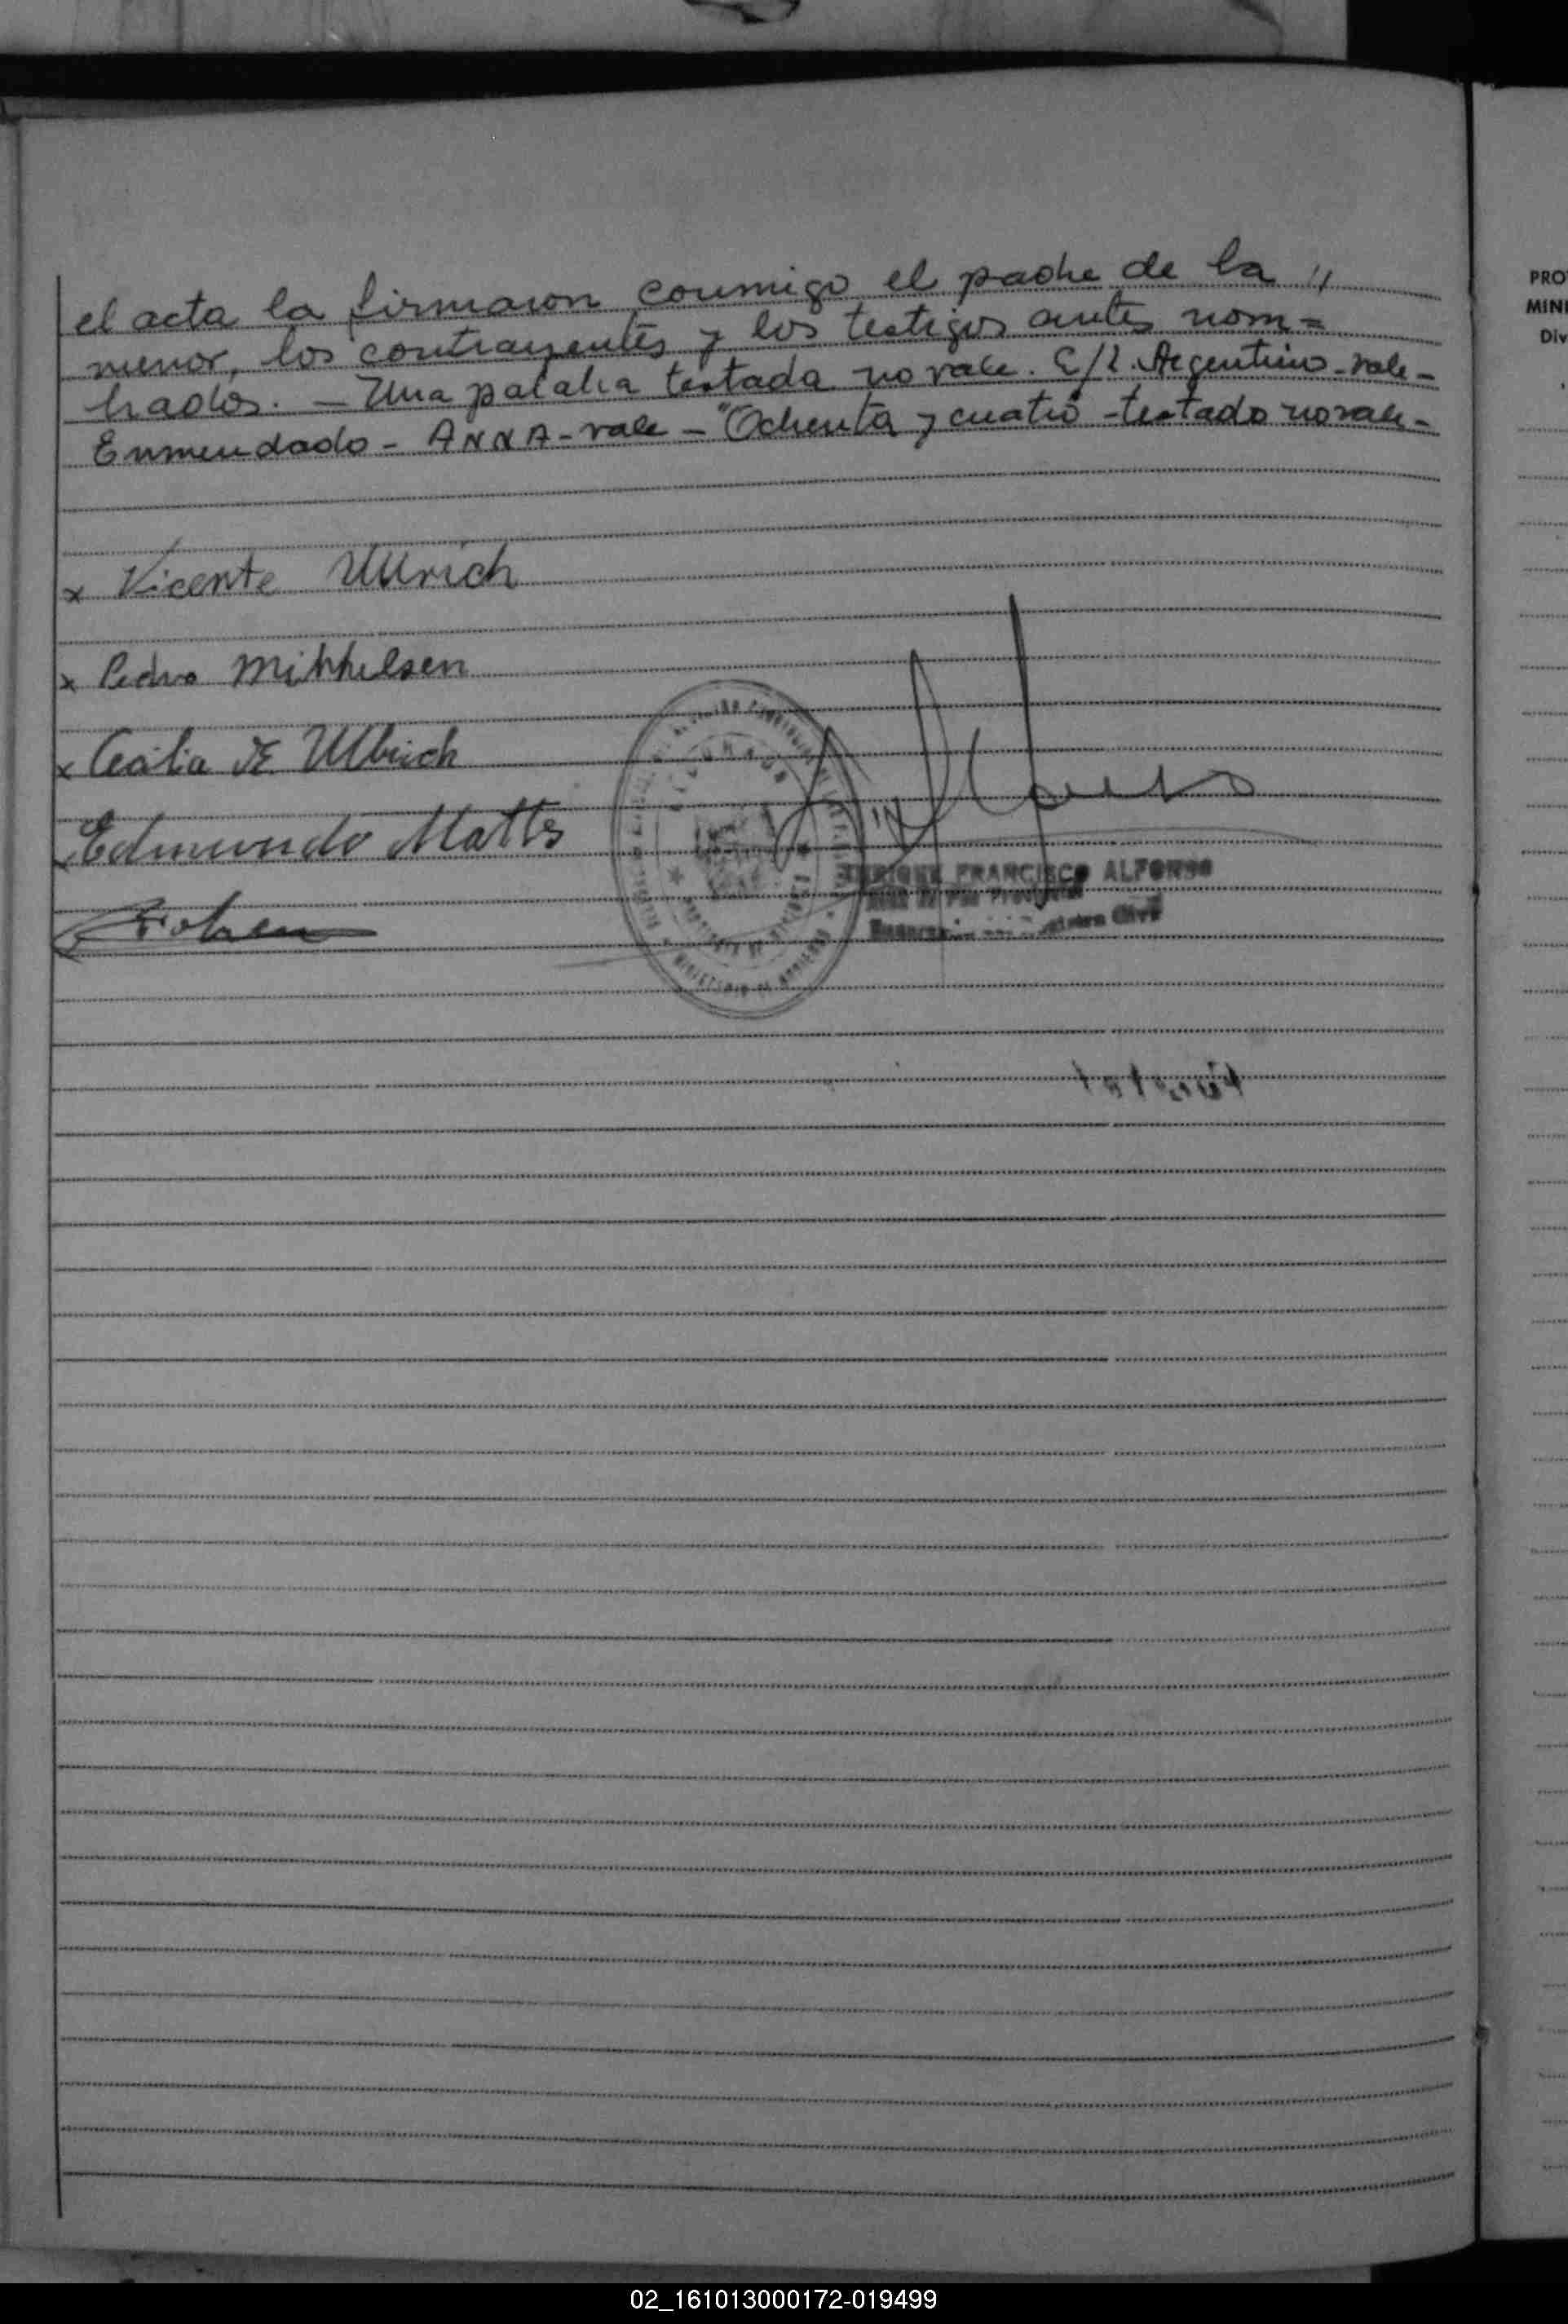 el acta la firmaron conmigo el padre de la //
menor, los contrayentes y los testigos antes nom=
brados. - Una palabra testada no vale. E/L. Argentino-vale-
Enmendado - ANNA - vale - "Ochenta y cuatro - testado no vale -
x Vicente Ullrich
x Pedro Mikkelsen
x Cecilia E. Ullrich
Edmundo Matts
ENRIQUE FRANCISCO ALFONSO
Juez de Paz
PRO
MINI
Div
02_161013000172-019499